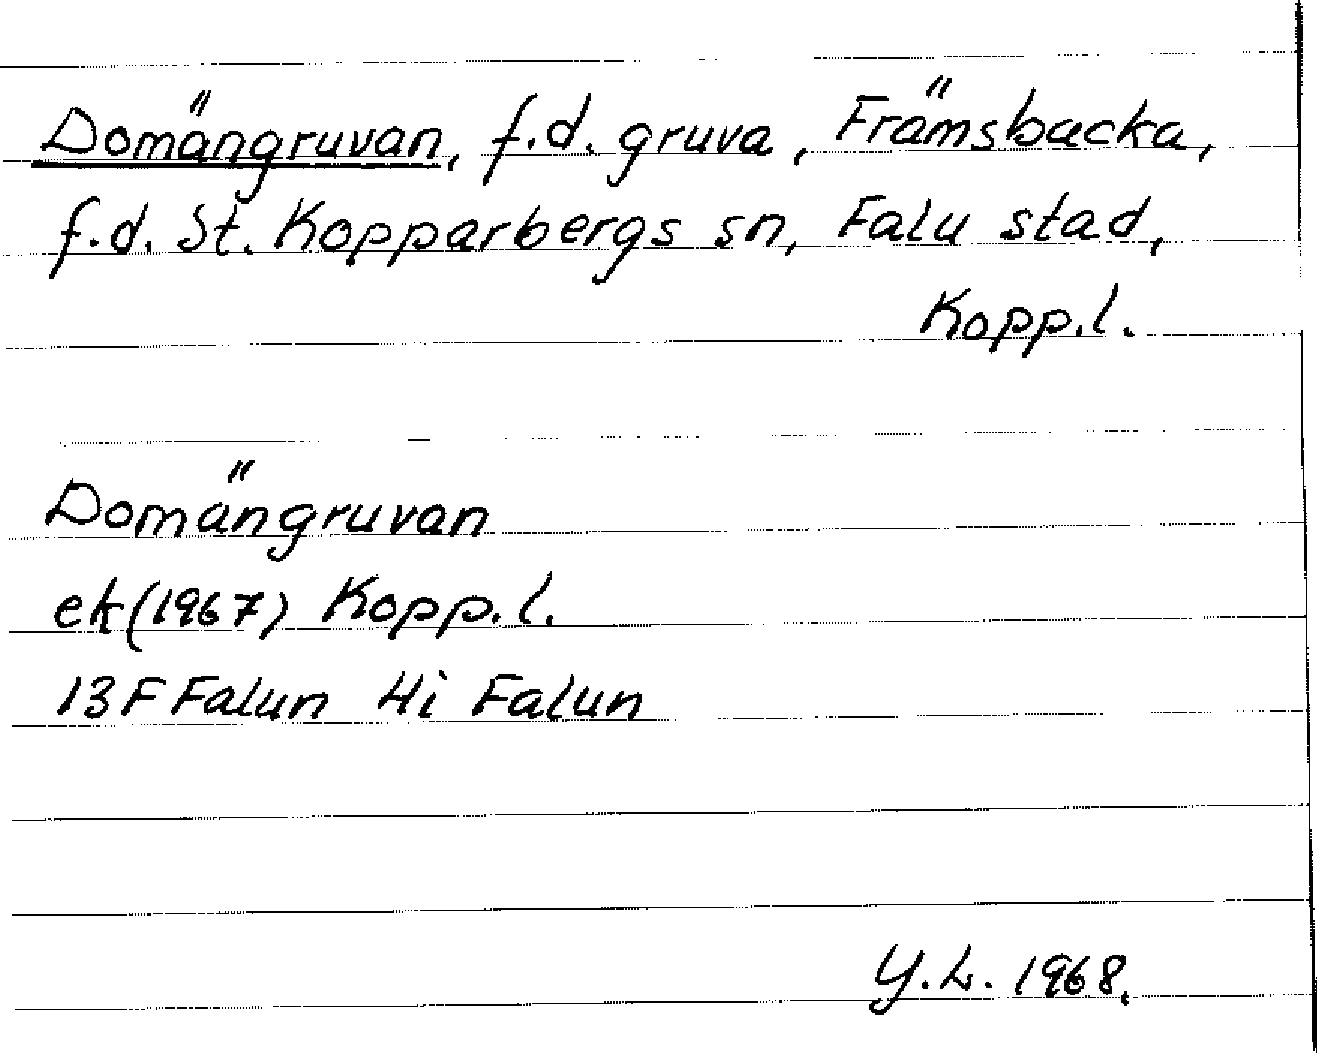 Domängruvan, f.d. gruva, Främsbacka,
f.d. St. Kopparbergs sn, Falu stad,
Kopp.l.
Domängruvan
ek (1967) Kopp.l.
13F Falun 4i Falun
Y.L. 1968.